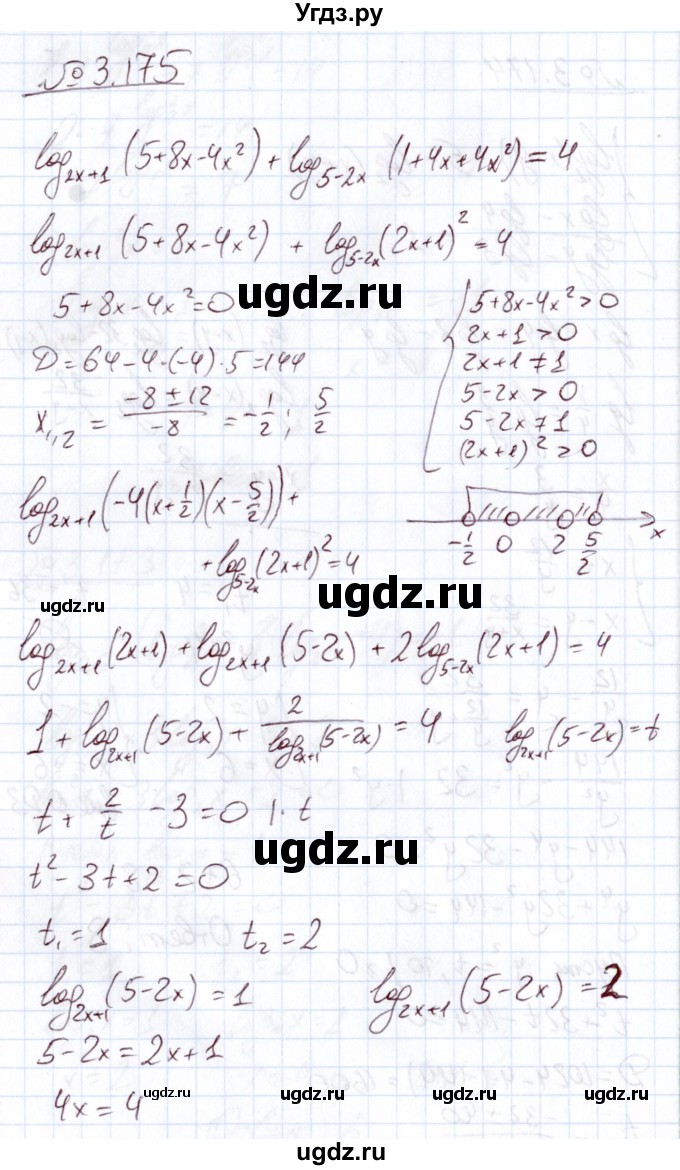 Угдз.ру
№ 3.175
log₂ₓ₊₁ (5+8x-4x²) + log₅₋₂ₓ (1+4x+4x²) = 4
log₂ₓ₊₁ (5+8x-4x²) + log₅₋₂ₓ (2x+1)² = 4
5+8x-4x²=0
ugdz.ru
D=64-4·(-4)·5=144
x₁,₂ = (-8±12)/(-8) = -1/2; 5/2
5+8x-4x²>0
2x+1>0
2x+1≠1
5-2x>0
5-2x≠1
(2x+1)²>0
log₂ₓ₊₁ (-4(x+1/2)(x-5/2)) +
+ log₅₋₂ₓ (2x+1)² = 4
-1/2 0 2 5/2 x
ugdz.ru
ugdz.ru
log₂ₓ₊₁ (2x+1) + log₂ₓ₊₁ (5-2x) + 2log₅₋₂ₓ (2x+1) = 4
1 + log₂ₓ₊₁ (5-2x) + 2/(log₂ₓ₊₁ (5-2x)) = 4 log₂ₓ₊₁ (5-2x) = t
t + 2/t - 3 = 0 |· t
ugdz.ru
t² - 3t + 2 = 0
t₁ = 1 t₂ = 2
log₂ₓ₊₁ (5-2x) = 1 log₂ₓ₊₁ (5-2x) = 2
5-2x = 2x+1
4x = 4
ugdz.ru
ugdz.ru
ugdz.ru